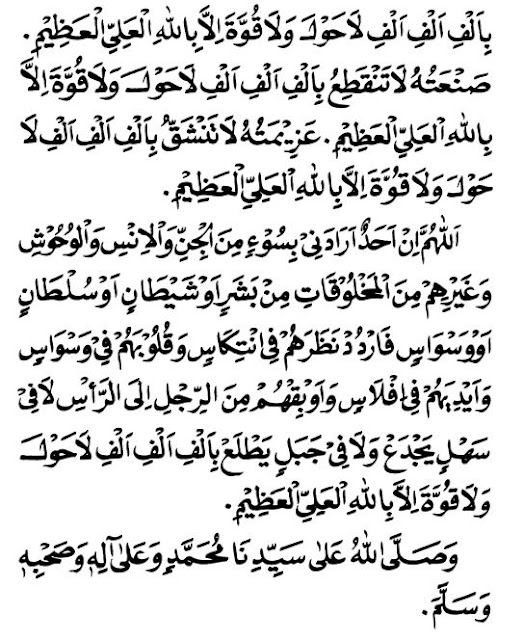 بِاَلْفِ اَلْفِ اَلْفِ لَاحَوْلَ وَلَاقُوَّةَ اِلَّابِاللهِ الْعَلِيِّ الْعَظِيْمِ.
صَنْعَتُهُ لَاتَنْقَطِعُ بِاَلْفِ اَلْفِ اَلْفِ لَاحَوْلَ وَلَاقُوَّةَ اِلَّا
بِاللهِ الْعَلِيِّ الْعَظِيْمِ. عَزِيْمَتُهُ لَاتَنْشَقُّ بِاَلْفِ اَلْفِ اَلْفِ لَا
حَوْلَ وَلَاقُوَّةَ اِلَّابِاللهِ الْعَلِيِّ الْعَظِيْمِ.
اَللّٰهُمَّ اِنْ اَحَدٌ اَرَادَنِيْ بِسُوْءٍ مِنَ الْجِنِّ وَالْاِنْسِ وَالْوُحُوْشِ
وَغَيْرِهِمْ مِنَ الْمَخْلُوْقَاتِ مِنْ بَشَرٍ اَوْ شَيْطَانٍ اَوْ سُلْطَانٍ
اَوْ وَسْوَاسٍ فَارْدُدْ نَظَرَهُمْ فِي انْتِكَاسٍ وَقُلُوْبَهُمْ فِيْ وَسْوَاسٍ
وَاَيْدِيَهُمْ فِيْ اِفْلَاسٍ وَاَوْبِقْهُمْ مِنَ الرِّجْلِ اِلَى الرَّأْسِ لَافِيْ
سَهْلٍ يَجْدَعْ وَلَافِيْ جَبَلٍ يَطْلَعْ بِاَلْفِ اَلْفِ اَلْفِ لَاحَوْلَ
وَلَاقُوَّةَ اِلَّابِاللهِ الْعَلِيِّ الْعَظِيْمِ.
وَصَلَّى اللهُ عَلَى سَيِّدِنَا مُحَمَّدٍ وَعَلَى آلِهِ وَصَحْبِهِ
وَسَلَّمَ.